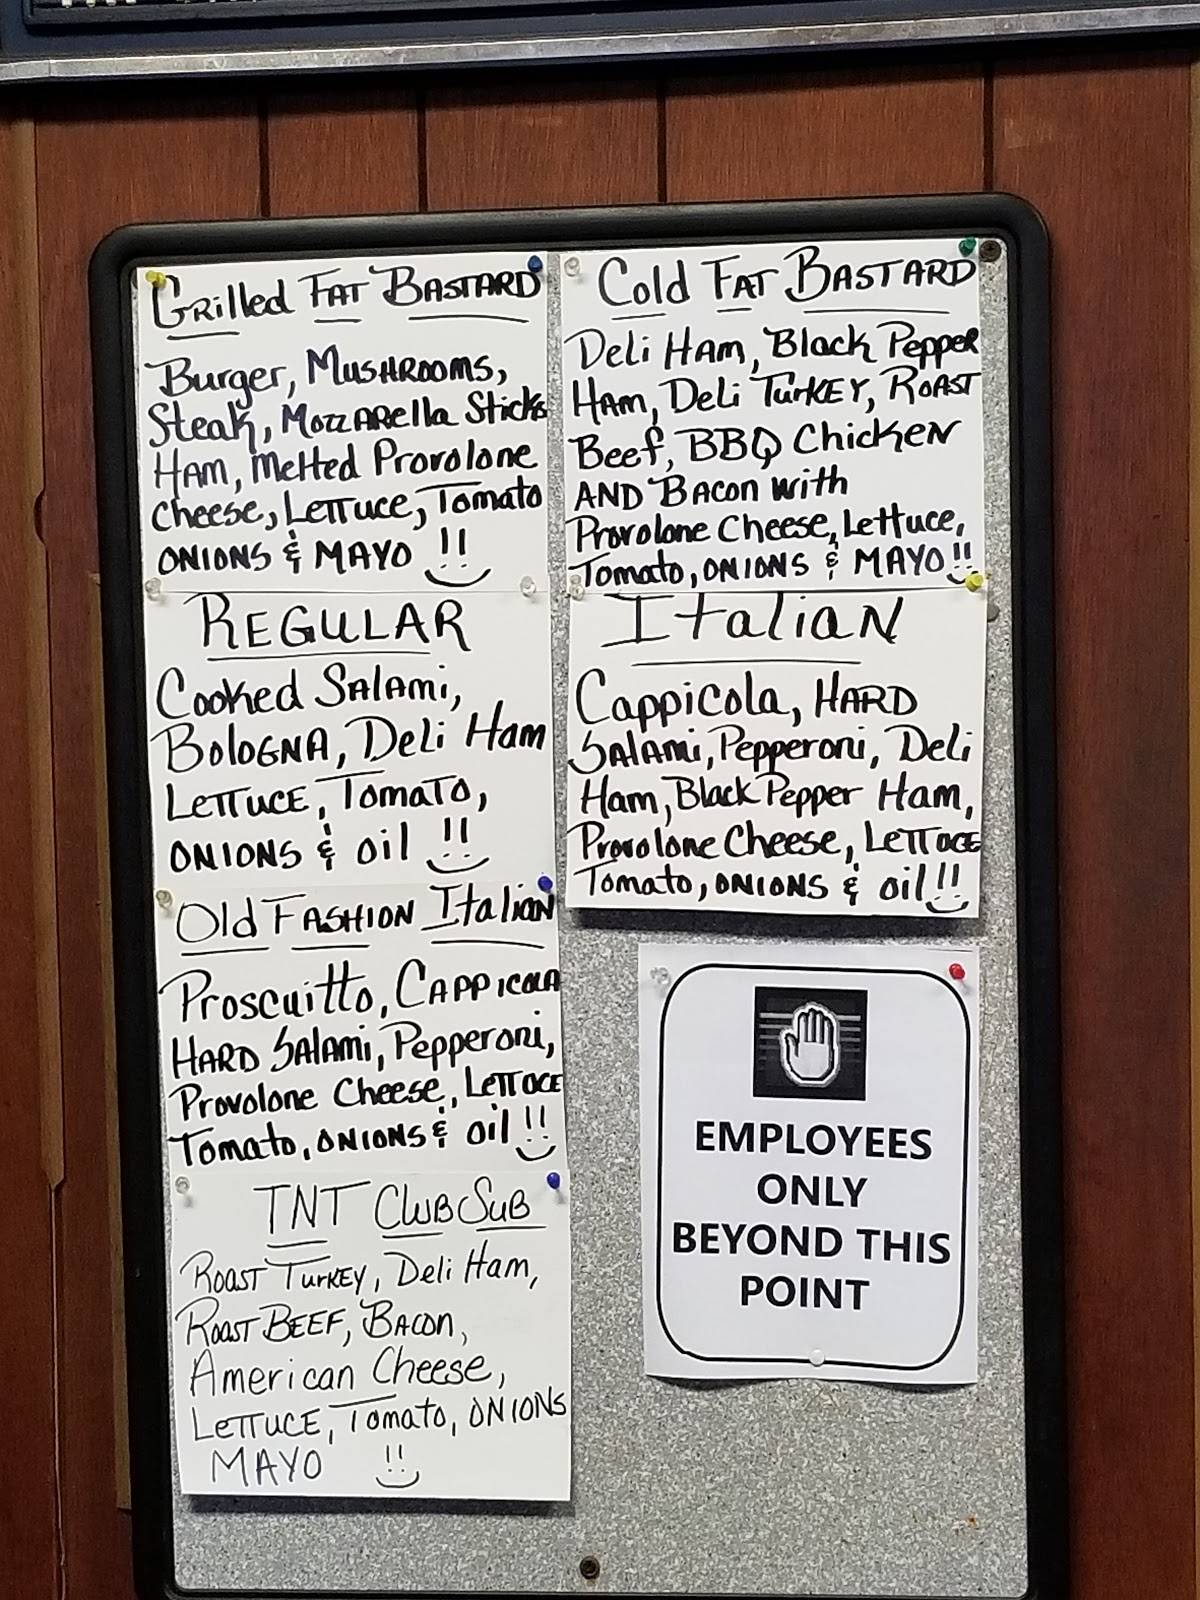 Grilled FAT BASTARD
Burger, MUSHROOMS,
Steak, MozzARella Sticks
HAM, Melted Provolone
Cheese, LETTuce, Tomato
ONIONS & MAYO !!
Cold FAT BASTARD
Deli HAM, Black Pepper
HAM, Deli TurKEY, ROAST
Beef, BBQ ChickeN
AND BACON with
Provolone Cheese, Lettuce,
Tomato, ONIONS & MAYO !!
REGULAR
Cooked SALAMi,
BoloGNA, Deli Ham
LETTUCE, TOMATO,
ONIONS & oil !!
ItaliaN
Cappicola, HARD
SALAMi, Pepperoni, Deli
Ham, Black Pepper Ham,
Provolone Cheese, LETTUCE
Tomato, ONIONS & oil !!
Old FASHION Italian
Proscuitto, CAPPicola
HARD SALAMi, Pepperoni,
Provolone Cheese, LETTUCE
Tomato, ONIONS & oil !!
TNT CLUB SUB
ROAST TurKEY, Deli Ham,
ROAST BEEF, BACON,
American Cheese,
LETTUCE, Tomato, ONIONS
MAYO !!
EMPLOYEES
ONLY
BEYOND THIS
POINT